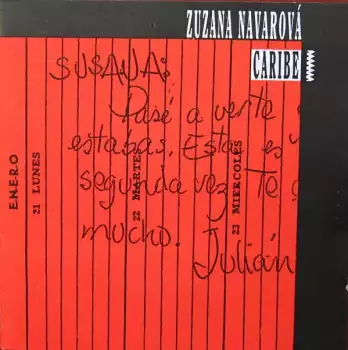 ZUZANA NAVAROVÁ
CARIBE
SUSANA:
Pasé a verte
estabas. Esta es
segunda vez. Te
mucho.
Julián
E.N.E.R.O
21 LUNES
22 MARTES
23 MIERCOLES